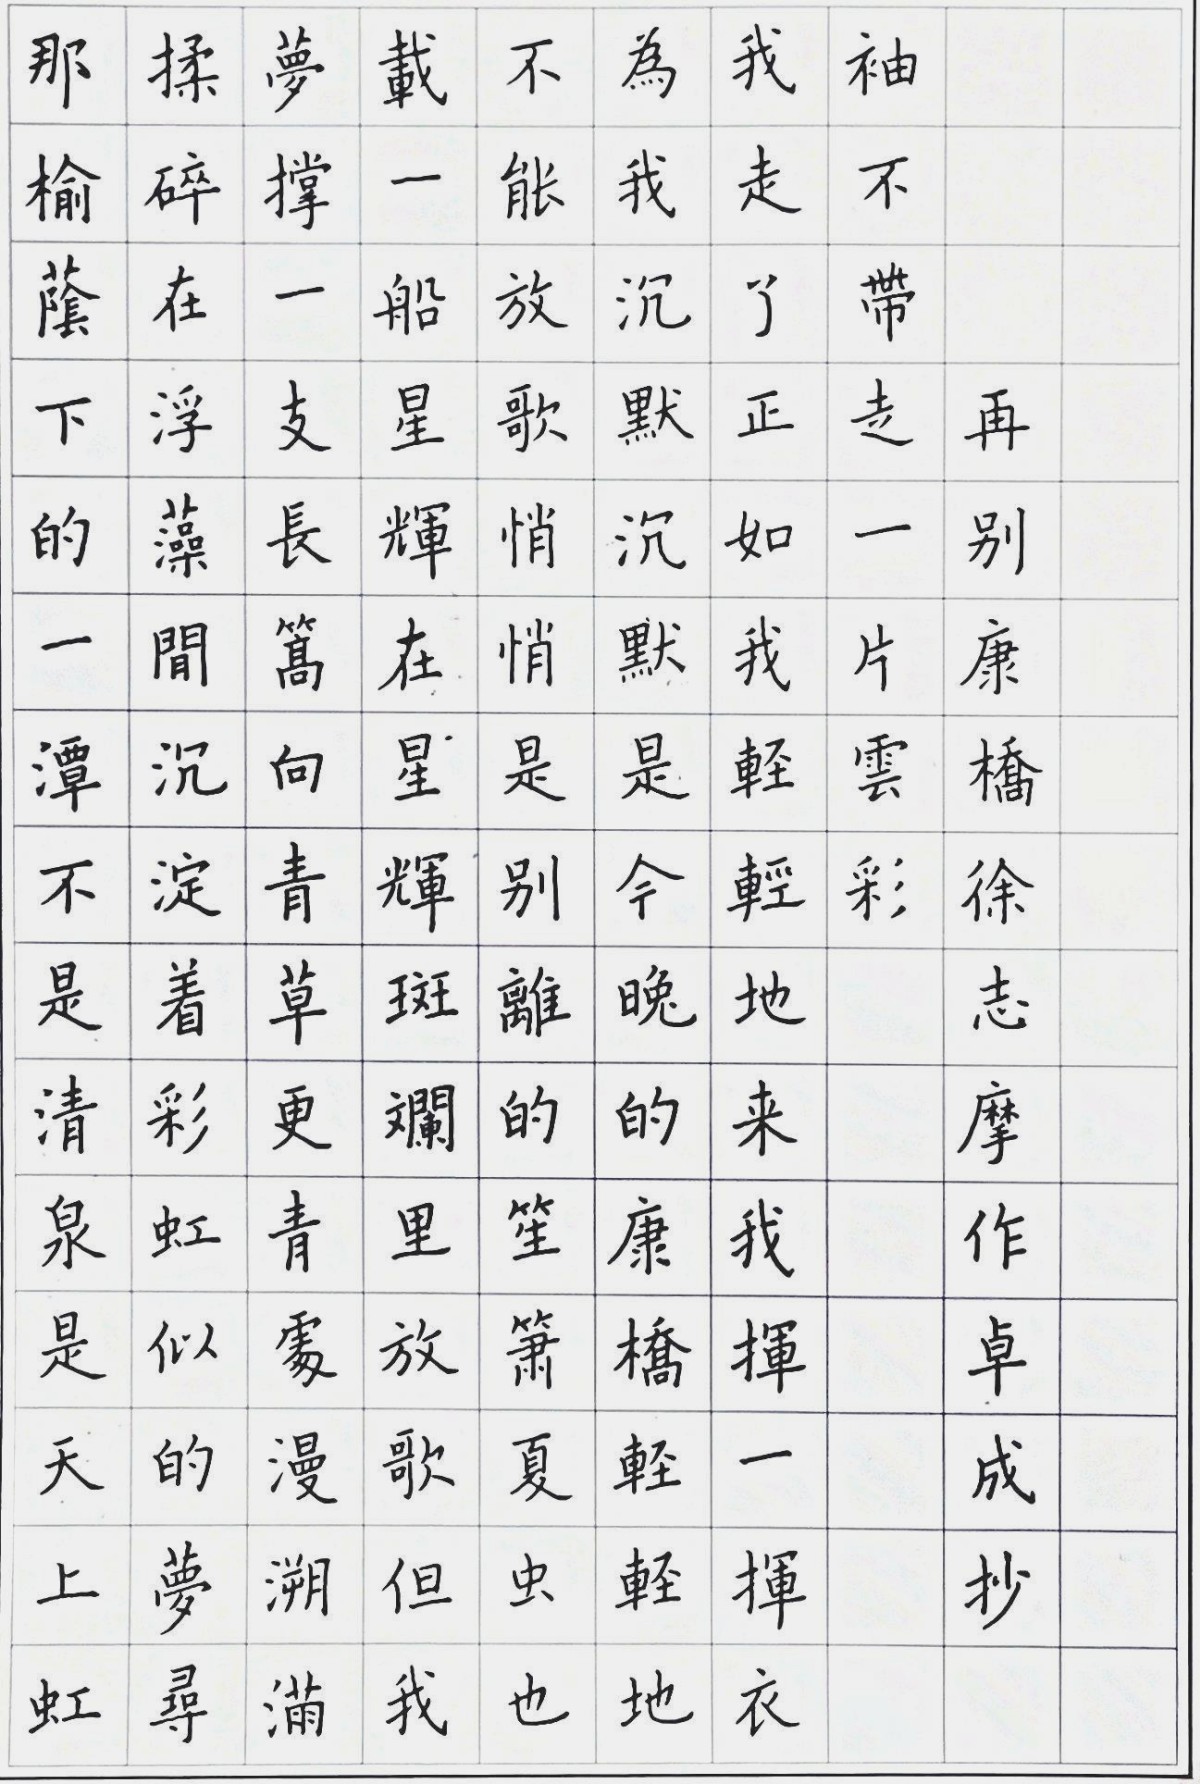 那榆蔭下的一潭不是清泉是天上虹
揉碎在浮藻閒沉淀着彩虹似的夢尋
夢撑一支長篙向青草更青處漫溯滿
載一船星輝在星輝斑斕里放歌但我
不能放歌悄悄是别離的笙簫夏虫也
為我沉默沉默是今晚的康橋輕輕地
我走了正如我輕輕地来我揮一揮衣
袖不帶走一片雲彩
再别康橋徐志摩作卓成抄